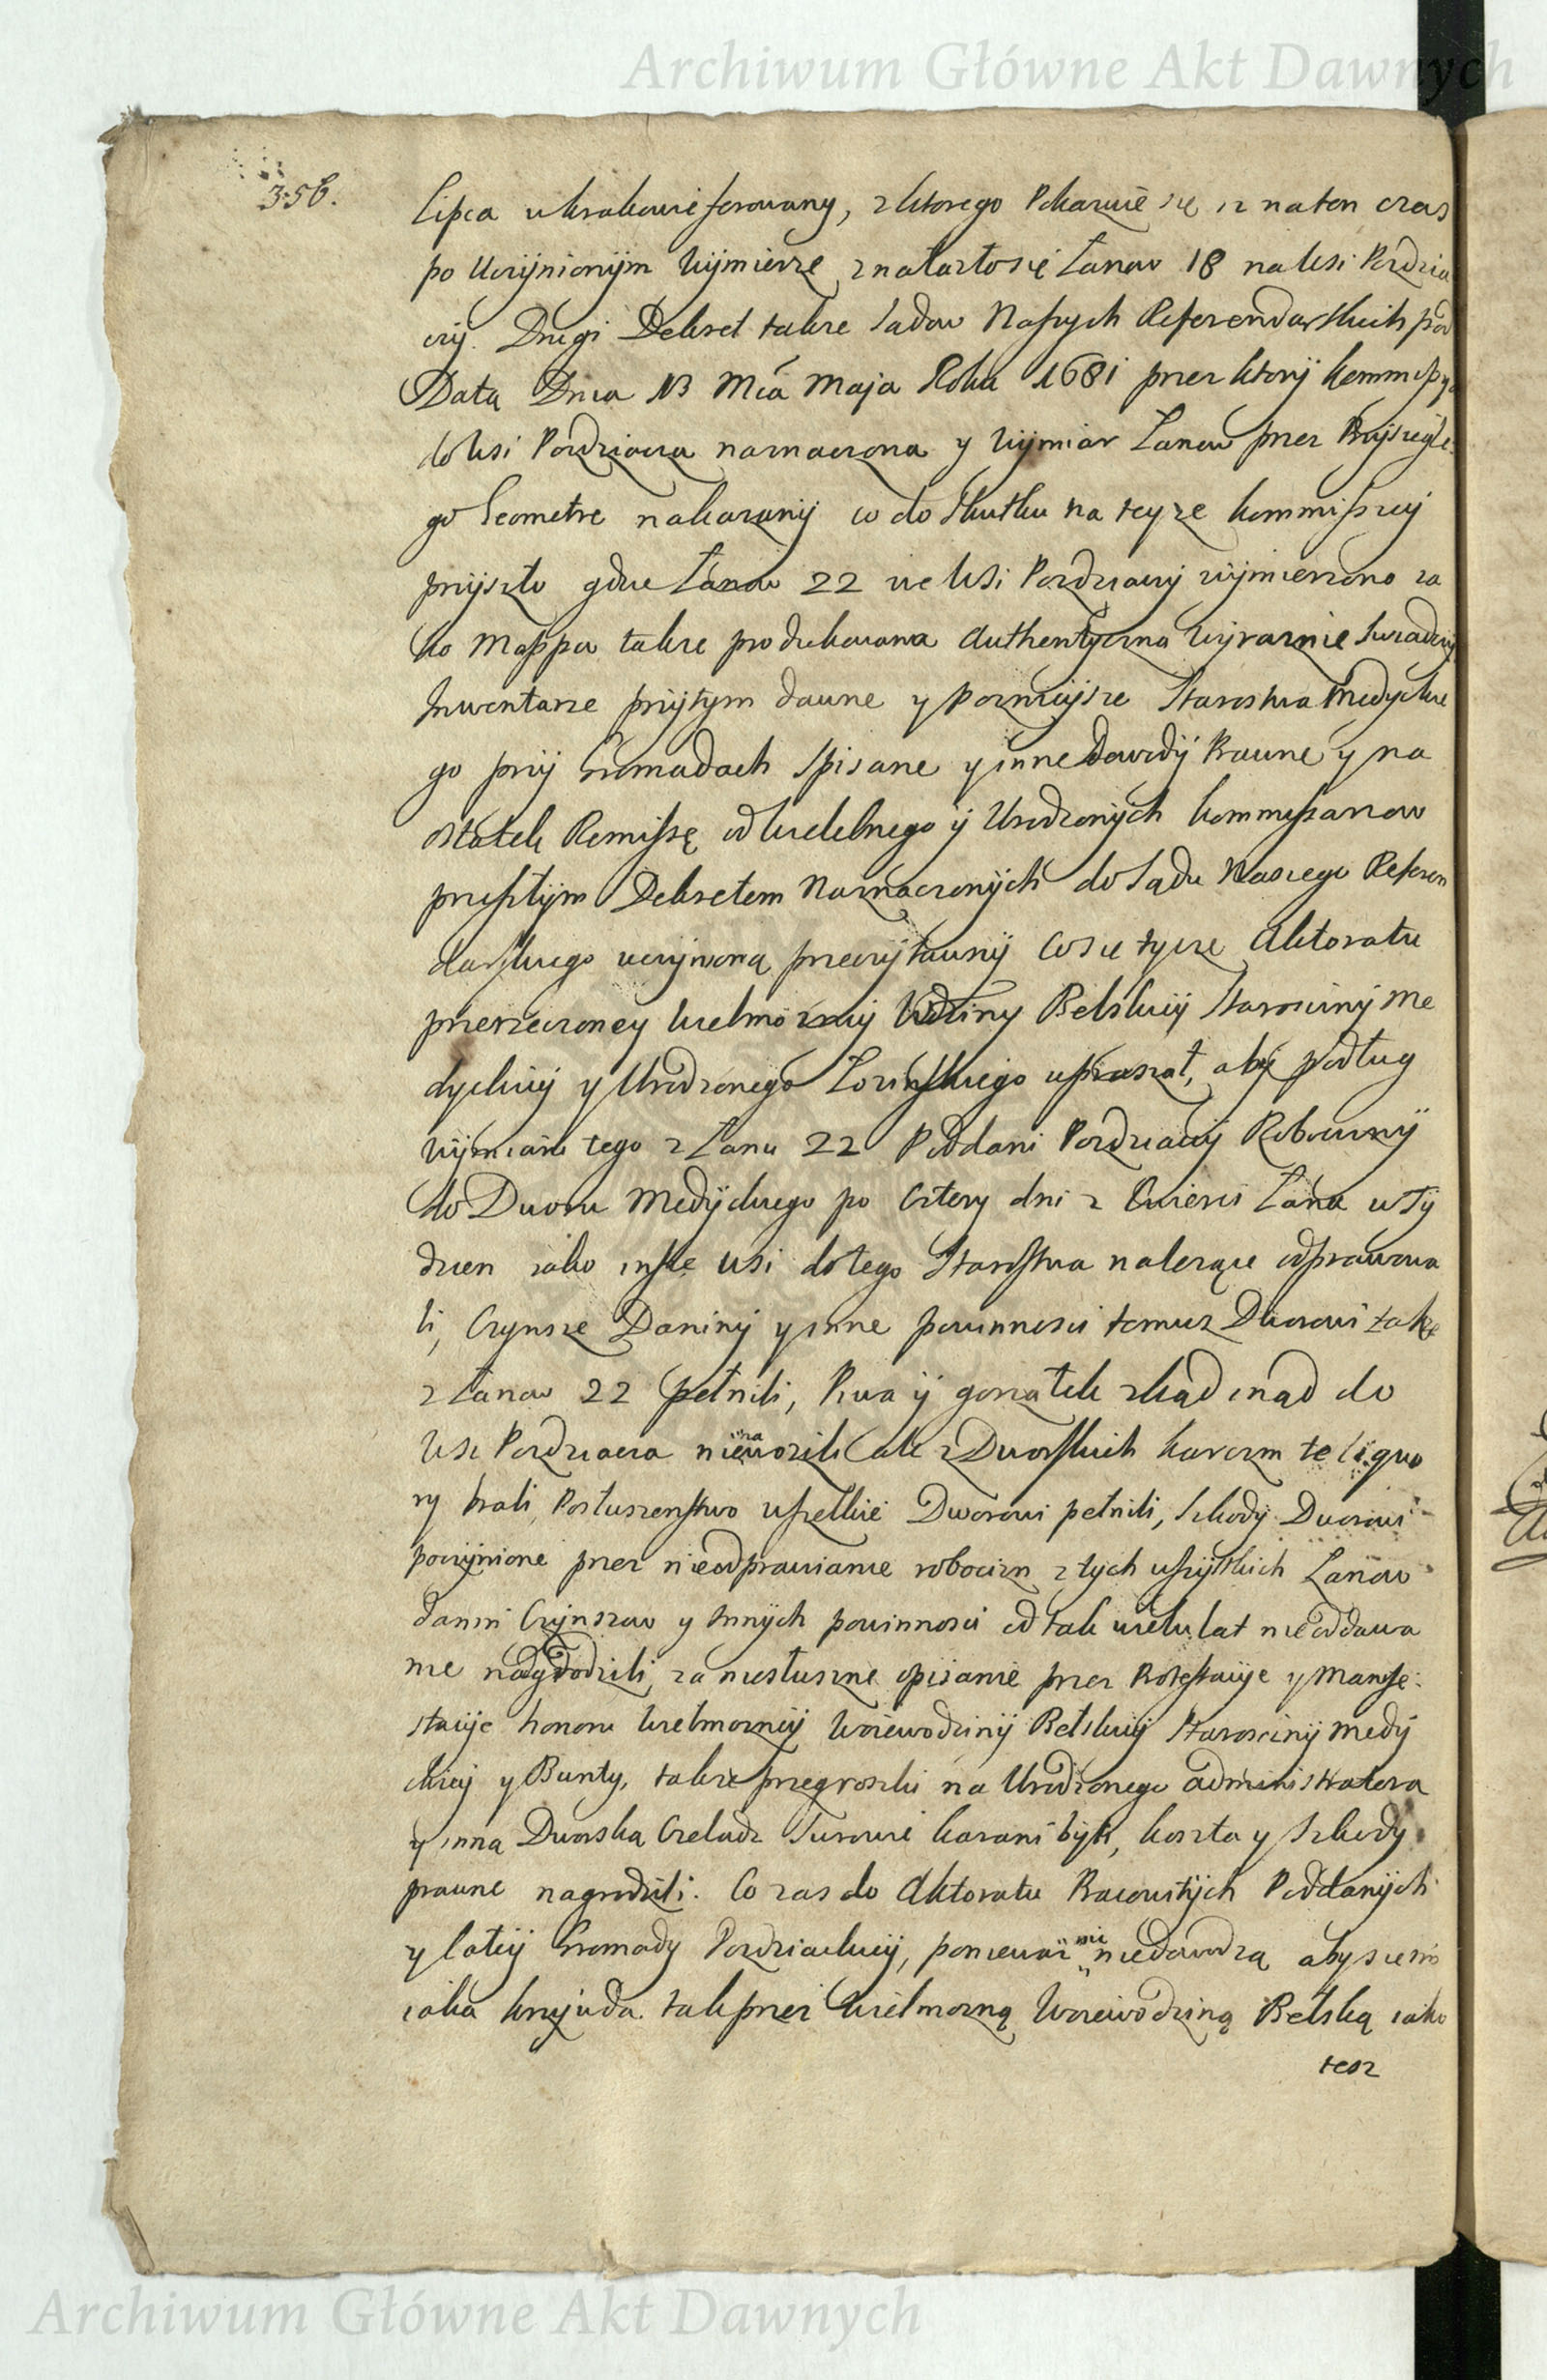 Archiwum Główne Akt Dawnych
356.
Lipca w krakowie ferowany, z ktorego Pokazuie się iz na ten czas
po Uczÿnionÿm Wÿmierze znalazło się Łanow 18 na Wsi Pozdzia
czÿ. Drugi Dekret takze Sadow Naszych Referendarskich pod
Data Dnia 13 Mca Maja Roku 1681 przez ktorÿ kommissya
do Wsi Pozdziacza naznaczona y Wÿmiar Łanow przez Przysięgłe
go Geometre nakazanÿ co do skutku na teyze kommissyÿ
przÿszło gdzie Łanow 22 we Wsi Pozdziaczÿ wÿmierzono ia
ko Mappa takze produkowana Authentyczna wÿraznie Swiadczÿ
Inwentarze przÿtym dawne y poznieÿsze Starostwa Medyckie
go przÿ Gromadach Spisane y inne Dowodÿ Prawne y na
ostatek Remissę od Wielebnego ÿ Urodzonÿch kommissarzow
przesztÿm Dekretem Naznaczonÿch do Sądu Naszego Referen
darskiego uczÿnioną przeczÿtawszÿ Co się tycze Aktoratu
przerzeczoney Wielmozneÿ Wdziny Bełskieÿ Starosciny Me
dyckieÿ y Urodzonego Łozinskiego upraszał, abÿ podług
Wÿmiaru tego z Łanu 22 Poddani Pozdziaccÿ Robociznÿ
do Dworu Medÿckiego po Cztery dni z Cwierci Łana w Tÿ
dzien iako insze Wsi do tego Starostwa nalezące odprawowa
li, Czynsze Daninÿ y inne powinnosci temuz Dworowi takze
z Łanow 22 pełnili, Piwa ÿ gorzałek zkąd inąd do
Wsi Pozdziacza nie na wozili ale z Dworskich karczm te liquo
ry brali, Posłuszenstwo wszelkie Dworowi pełnili, Szkodÿ Dworowi
poczÿnione przez nieodprawianie robocizn z tych wszÿstkich Łanow
danin Czÿnszow y Innÿch powinnosci od tak wielu lat nieoddawa
nie nadgrodzili, za niesłuszne opisanie przez Protestacÿe y Manife:
stacÿe honoru Wielmozneÿ Woiewodzinÿ Bełskieÿ Staroscinÿ Medÿ
ckieÿ y Bunty, takze przegrozki na Urodzonego administratora
y inna Dworska Czeladz Surowie karani byli, koszta y Szkodÿ
prawne nagrodzili. Co zas do Aktoratu Pracowitÿch Poddanÿch
y całeÿ Gromady Pozdziackieÿ, poniewaz nie niedowodzą aby się im
iaka krzÿwda tak przez Wielmozną Woiewodziną Bełską iako
tesz
Archiwum Główne Akt Dawnych